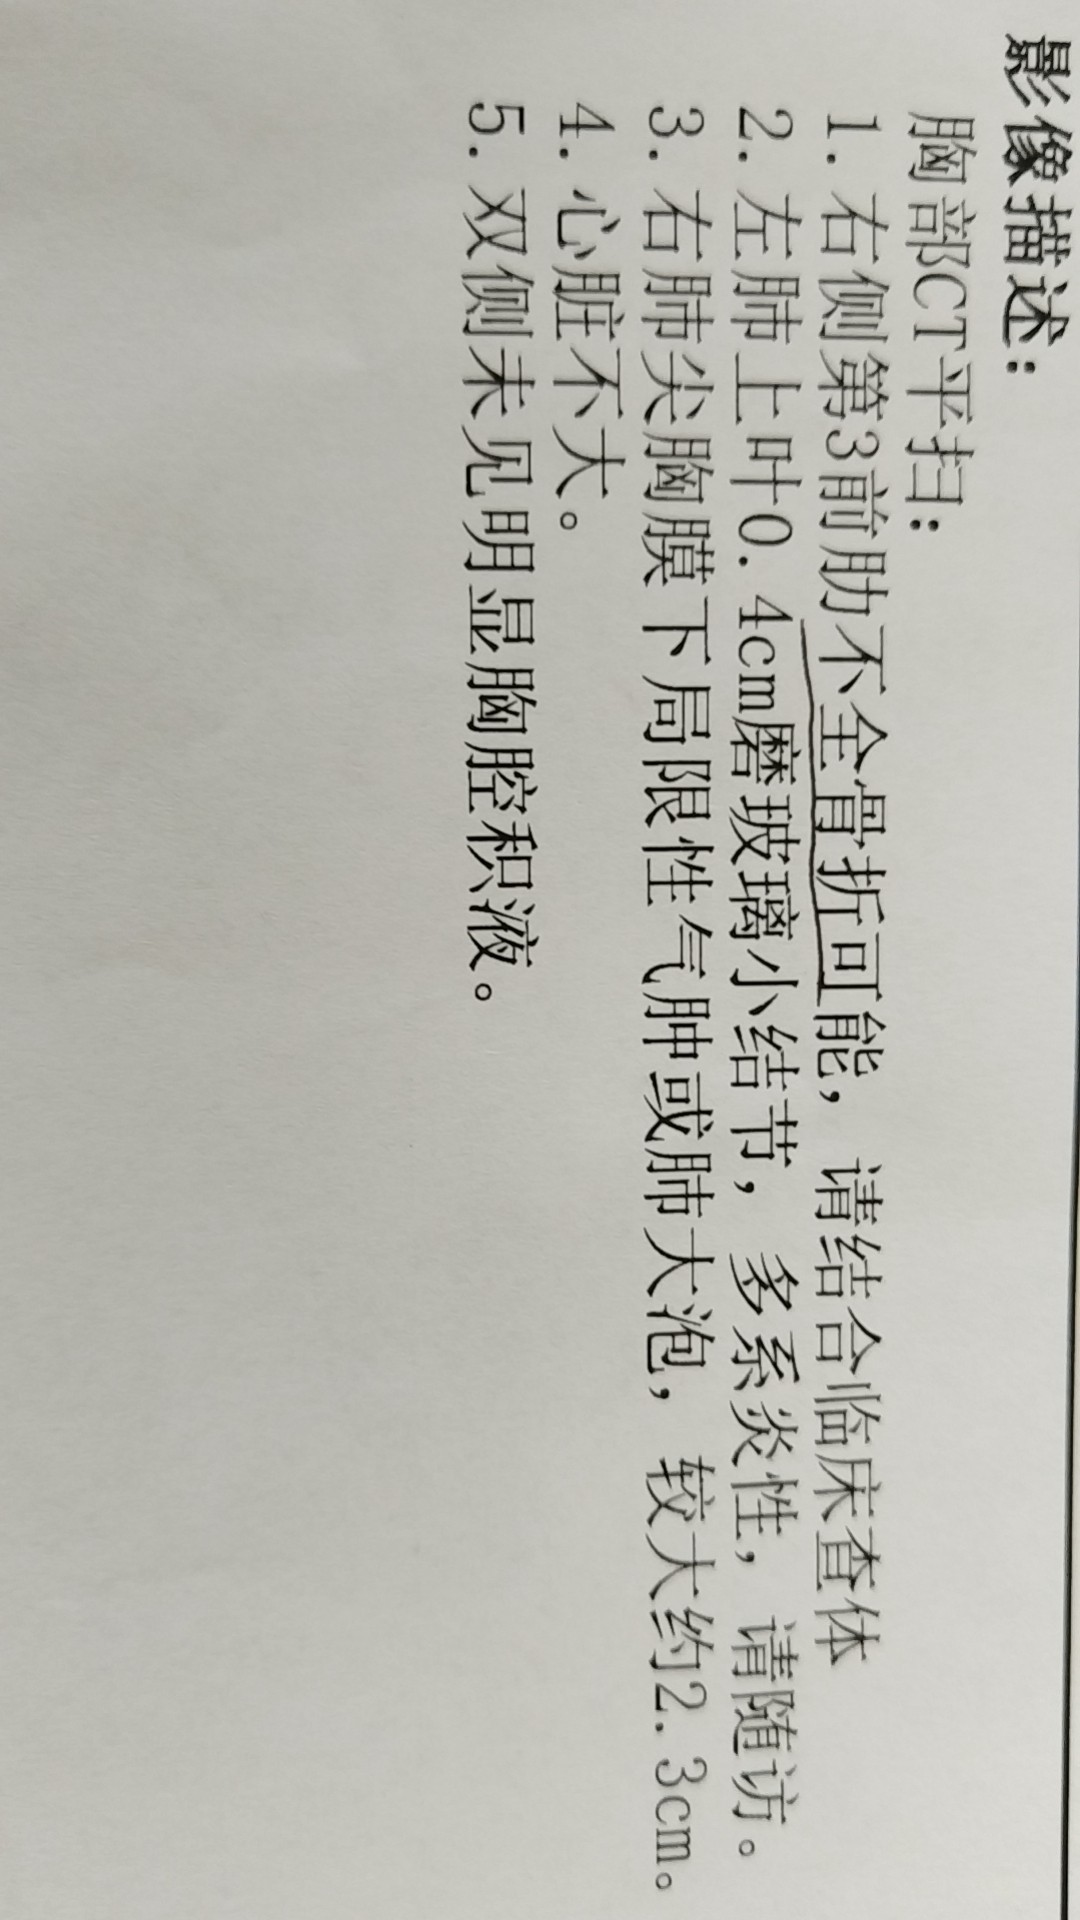 影像描述:
胸部CT平扫:
1. 右侧第3前肋不全骨折可能, 请结合临床查体
2. 左肺上叶0. 4cm磨玻璃小结节, 多系炎性, 请随访。
3. 右肺尖胸膜下局限性气肿或肺大泡, 较大约2. 3cm。
4. 心脏不大。
5. 双侧未见明显胸腔积液。